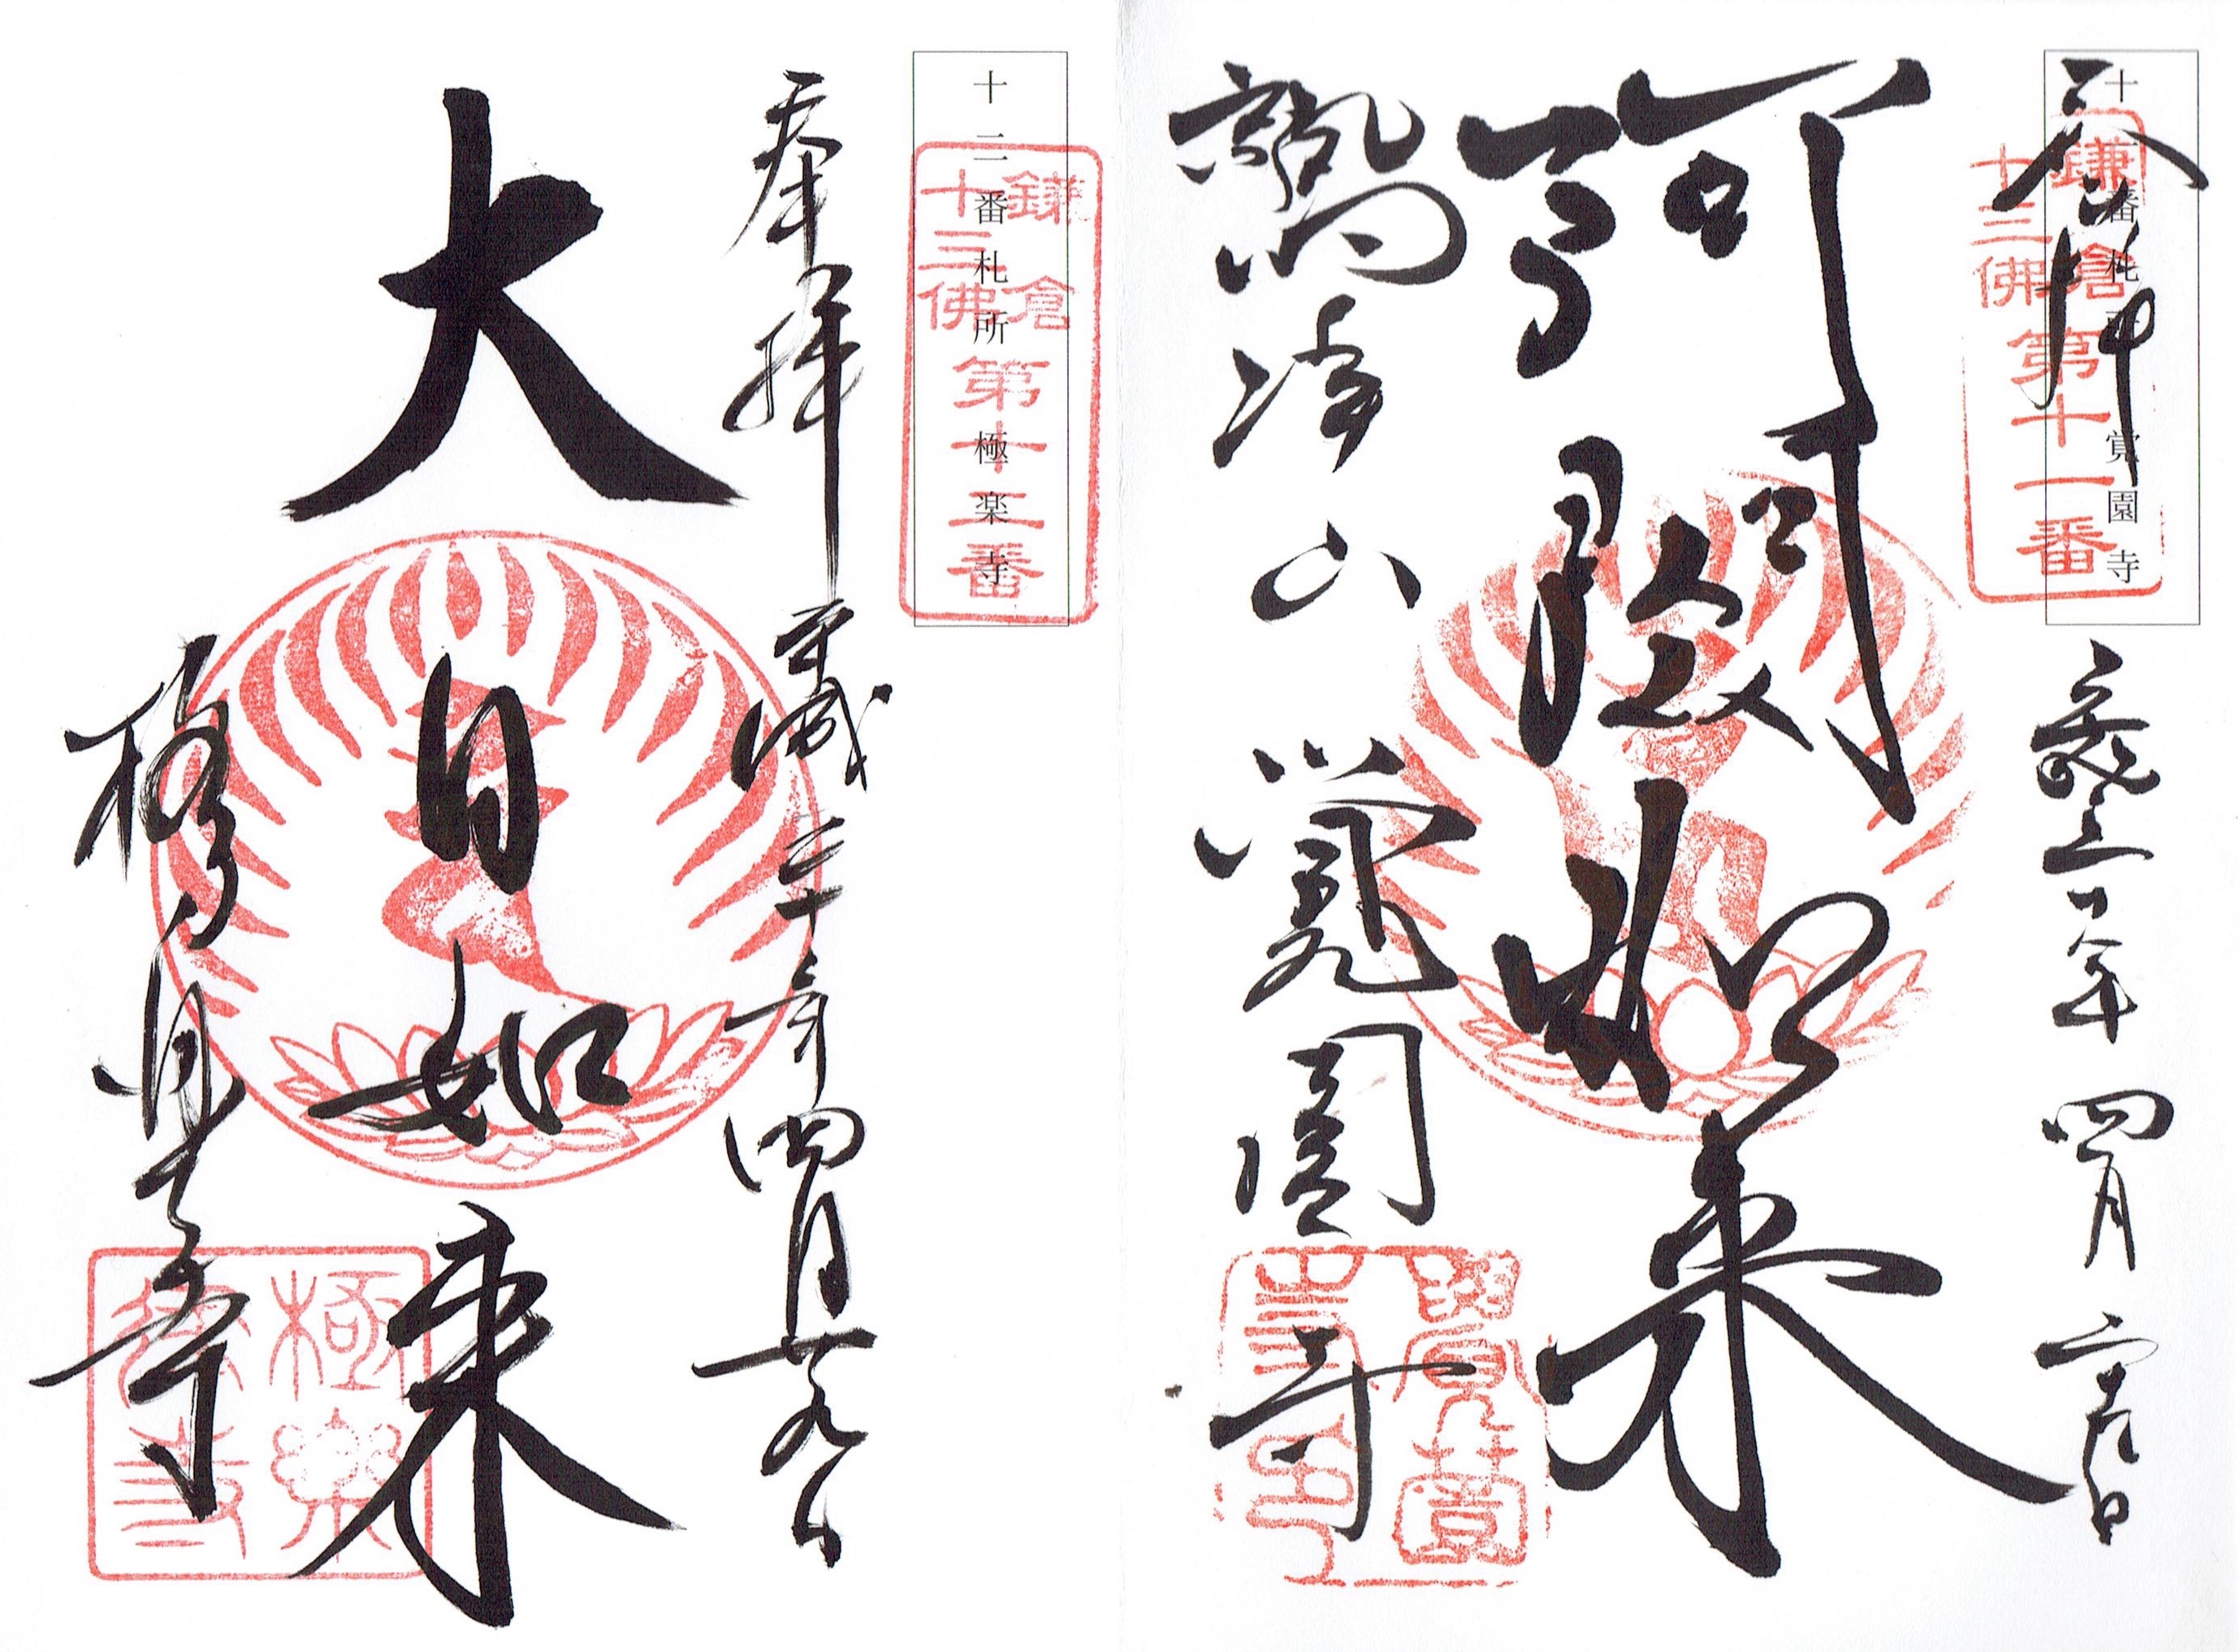 十一番札所　覚園寺
鎌倉
十三佛
第十一番
奉拝
平成三十年 四月 廿九日
阿閦如来
鷲峰山 覚園寺
十二番札所　極楽寺
鎌倉
十三佛
第十二番
奉拝 平成三十年四月廿九日
大日如来
極楽寺
極楽
律寺